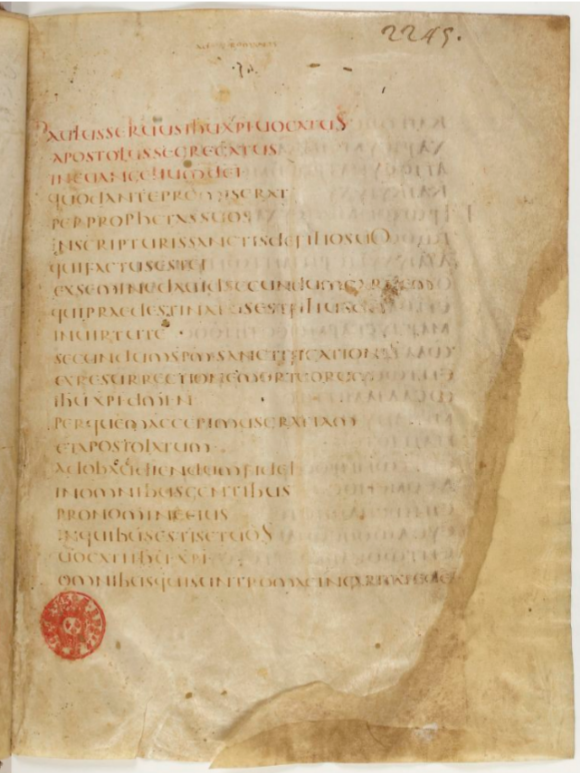 2245.
PAULUS SERUUS IHU XPI UOCATUS
APOSTOLUS SEGREGATUS
IN EUANGELIUM DEI
QUOD ANTE PROMISERAT
PER PROPHETAS SUOS
IN SCRIPTURIS SANCTIS DE FILIO SUO
QUI FACTUS EST EI
EX SEMINE DAUID SECUNDUM CARNEM
QUI PRAEDESTINATUS EST FILIUS DEI
IN UIRTUTE
SECUNDUM SPM SANCTIFICATIONIS
EX RESURRECTIONE MORTUORUM
IHU XPI DNI N
PER QUEM ACCEPIMUS GRATIAM
ET APOSTOLATUM
AD OBAUDIENDUM FIDEI
IN OMNIBUS GENTIBUS
PRO NOMINE EIUS
IN QUIBUS ESTIS ET UOS
UOCATI IHU XPI
OMNIBUS QUI SUNT ROMAE IN